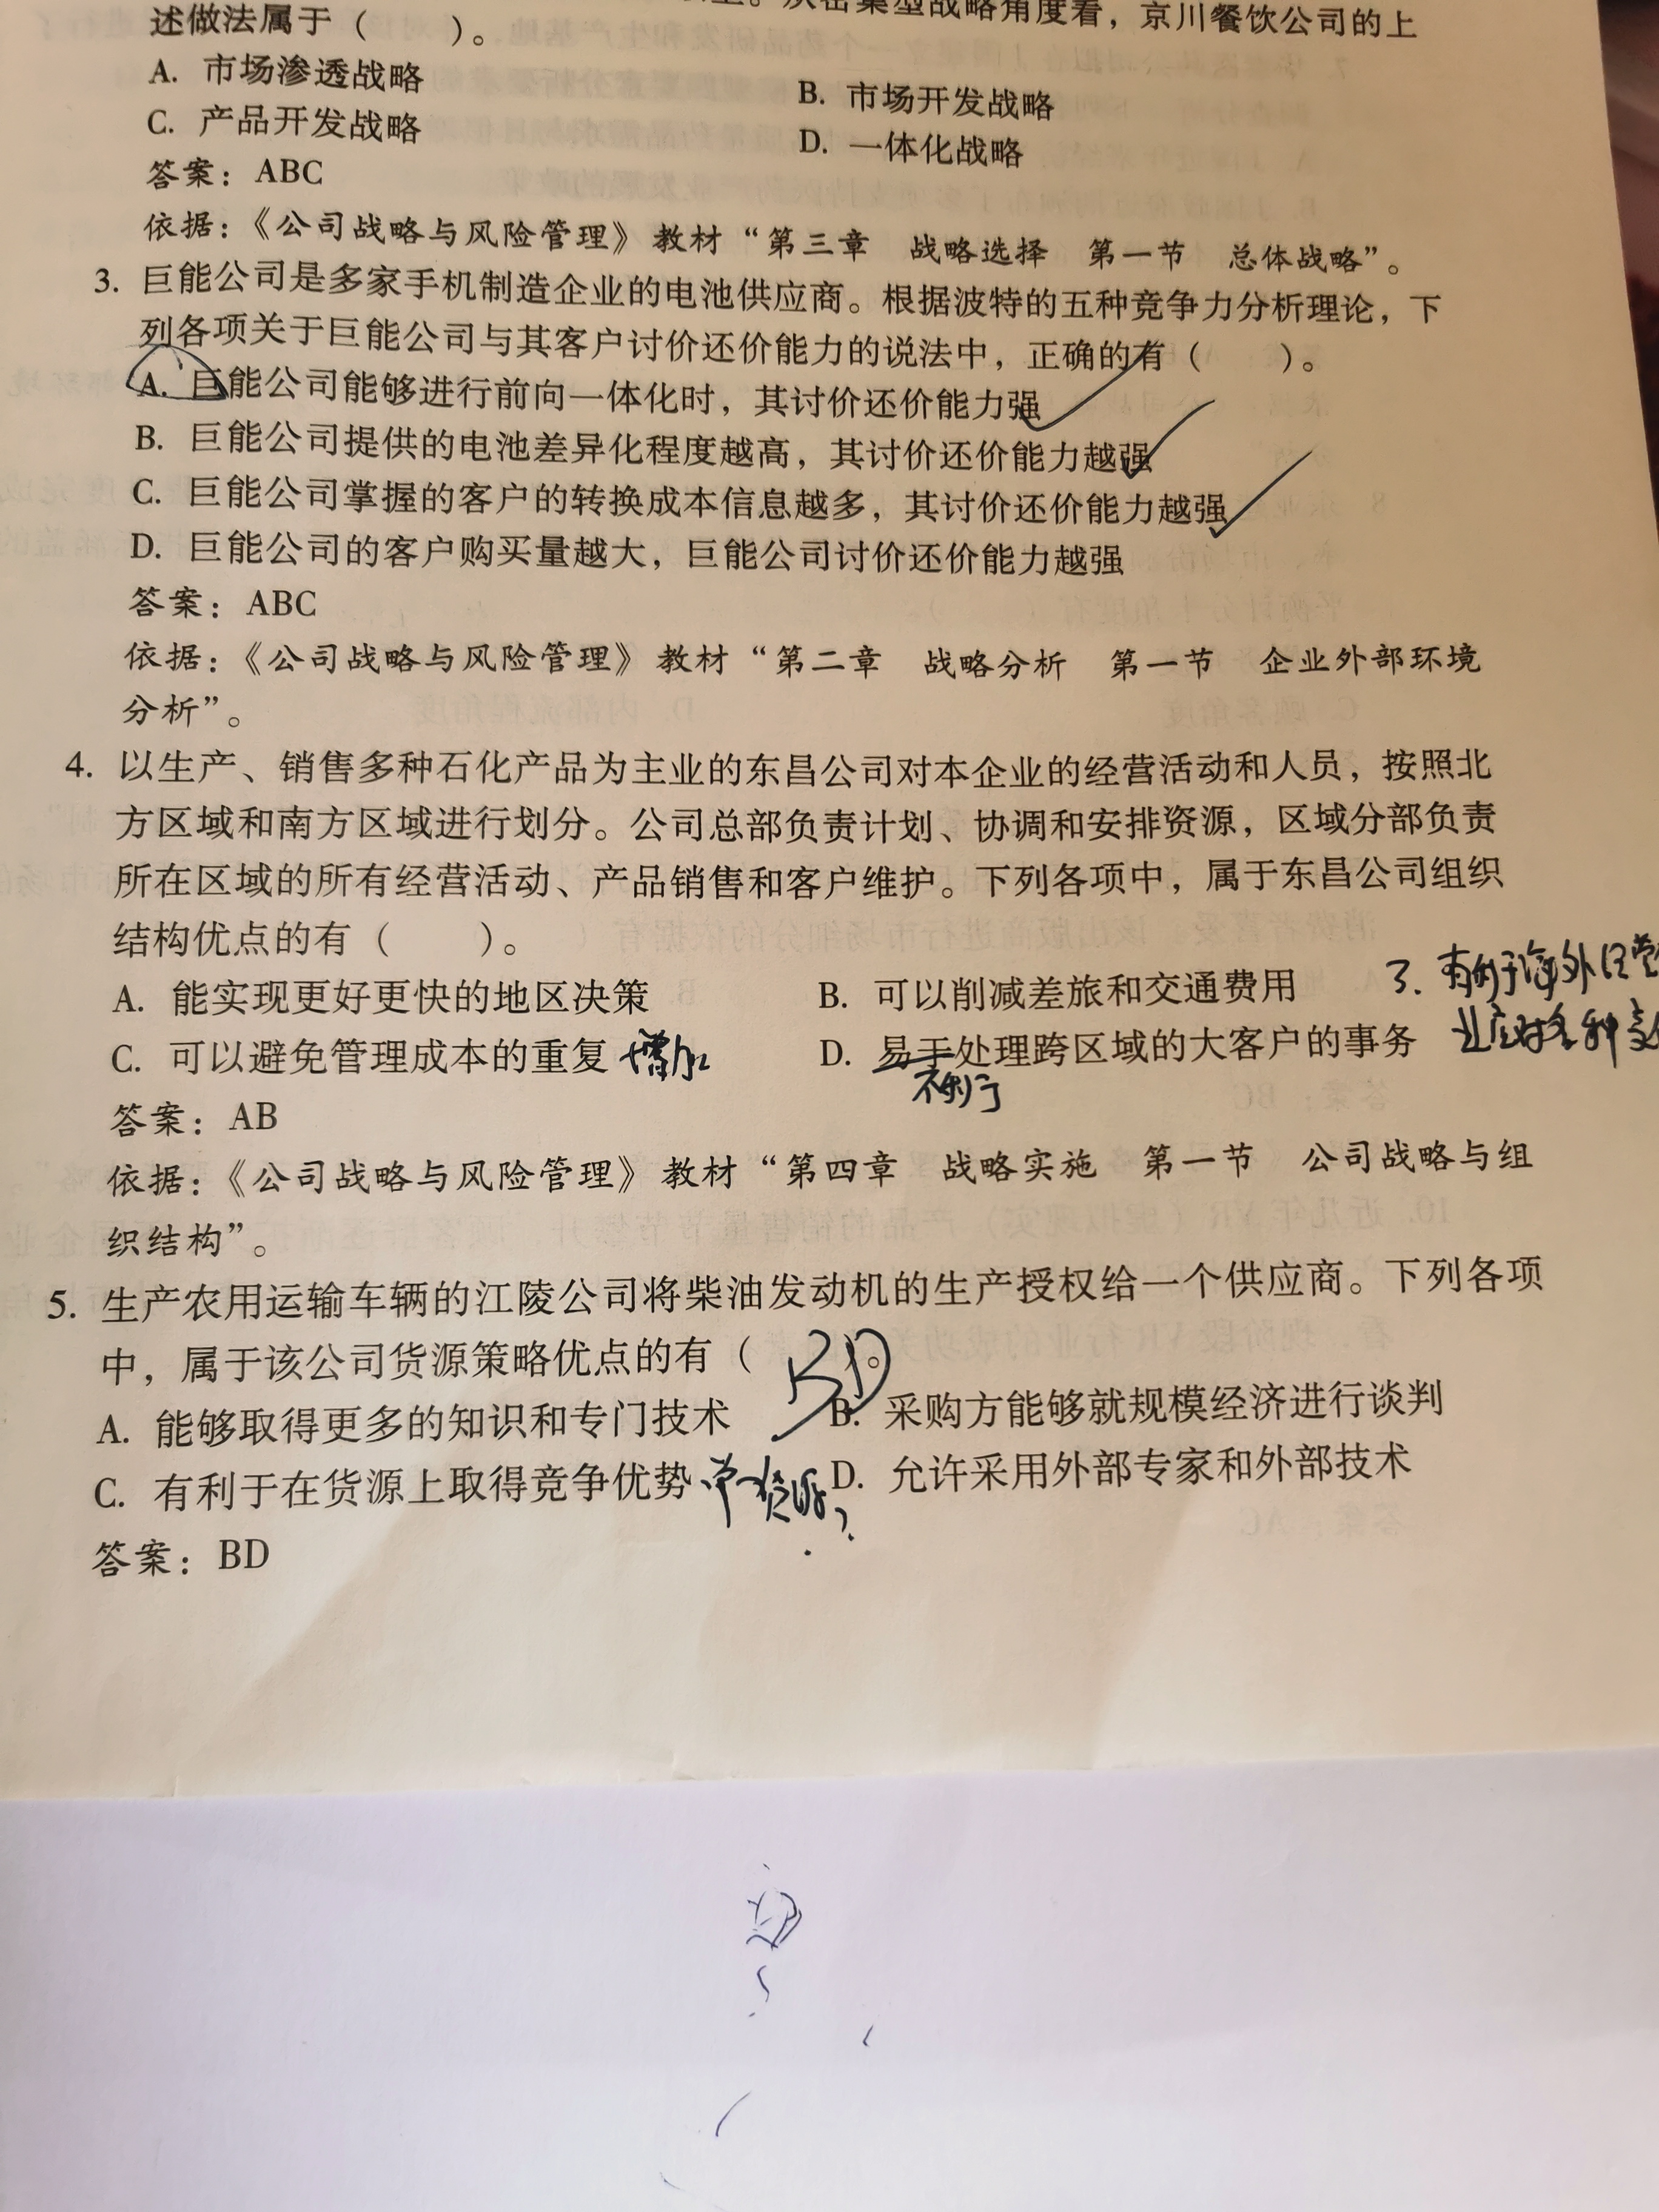 从密集型战略角度看，京川餐饮公司的上
述做法属于（　　）。
A. 市场渗透战略
B. 市场开发战略
C. 产品开发战略
D. 一体化战略
答案：ABC
依据：《公司战略与风险管理》教材“第三章　战略选择　第一节　总体战略”。
3. 巨能公司是多家手机制造企业的电池供应商。根据波特的五种竞争力分析理论，下
列各项关于巨能公司与其客户讨价还价能力的说法中，正确的有（　　）。
A. 巨能公司能够进行前向一体化时，其讨价还价能力强
B. 巨能公司提供的电池差异化程度越高，其讨价还价能力越强
C. 巨能公司掌握的客户的转换成本信息越多，其讨价还价能力越强
D. 巨能公司的客户购买量越大，巨能公司讨价还价能力越强
答案：ABC
依据：《公司战略与风险管理》教材“第二章　战略分析　第一节　企业外部环境
分析”。
4. 以生产、销售多种石化产品为主业的东昌公司对本企业的经营活动和人员，按照北
方区域和南方区域进行划分。公司总部负责计划、协调和安排资源，区域分部负责
所在区域的所有经营活动、产品销售和客户维护。下列各项中，属于东昌公司组织
结构优点的有（　　）。
A. 能实现更好更快的地区决策
B. 可以削减差旅和交通费用
3. 有利于海外经营
C. 可以避免管理成本的重复 增加
D. 易于处理跨区域的大客户的事务
业应对各种
不利于
答案：AB
依据：《公司战略与风险管理》教材“第四章　战略实施　第一节　公司战略与组
织结构”。
5. 生产农用运输车辆的江陵公司将柴油发动机的生产授权给一个供应商。下列各项
中，属于该公司货源策略优点的有（ BD ）。
A. 能够取得更多的知识和专门技术
B. 采购方能够就规模经济进行谈判
C. 有利于在货源上取得竞争优势 单一货源？
D. 允许采用外部专家和外部技术
答案：BD